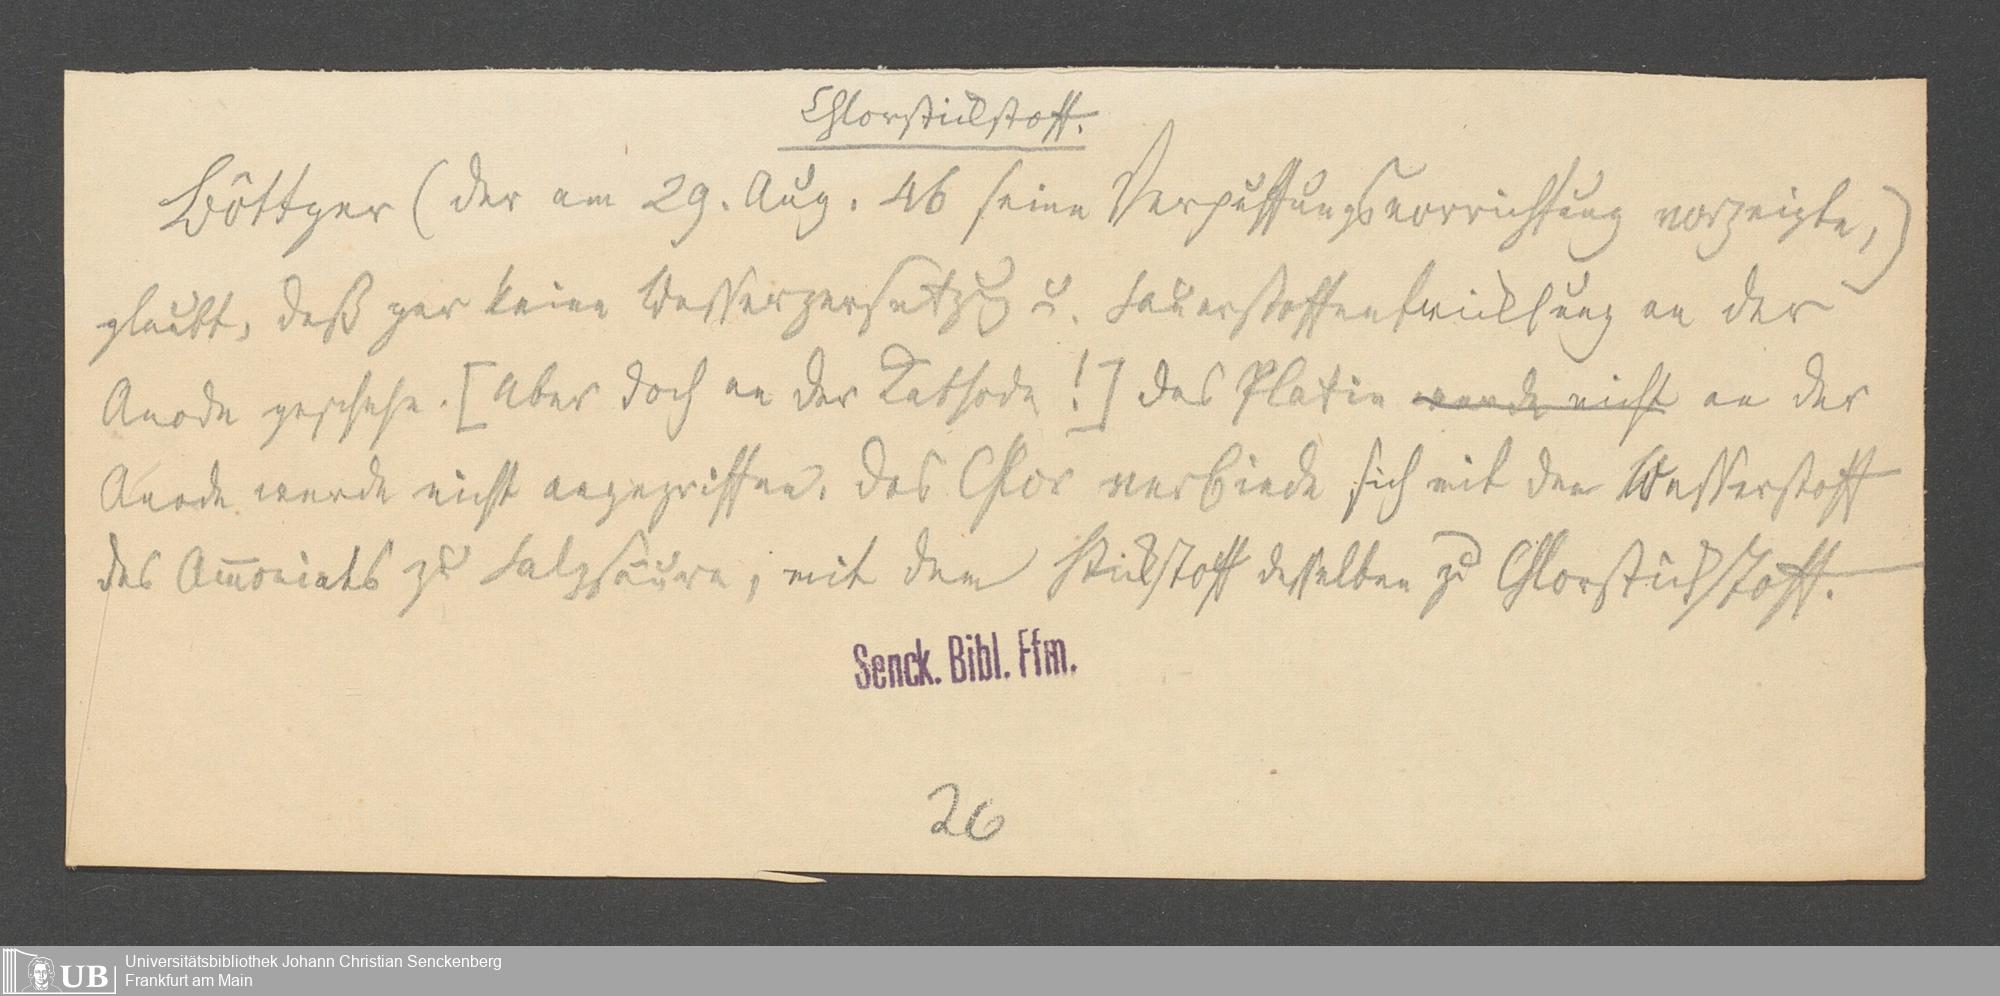 Chlorstickstoff.
Böttger (der am 29. Aug. 46 seine Verpuffungsvorrichtung vorzeigte,)
glaubt, daß gar keine Wasserzersetzg u. Sauerstoffentwicklung an der
Anode geschehe. [Aber doch an der Kathode!] das Platin werde nicht an der
Anode werde nicht angegriffen. Das Chlor verbinde sich mit dem Wasserstoff
des Am̅oniaks zu Salzsäure, mit dem Stickstoff desselben zu Chlorstickstoff.
Senck. Bibl. Ffm.
26
UB
Universitätsbibliothek Johann Christian Senckenberg
Frankfurt am Main